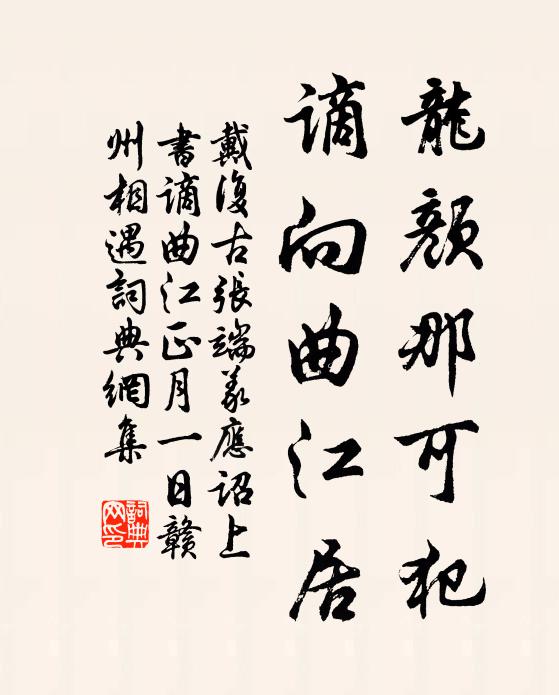 龍顏那可犯
謫向曲江居
戴復古張端義應詔上
書謫曲江正月一日贛
州相遇詞典網集
詞典
网印